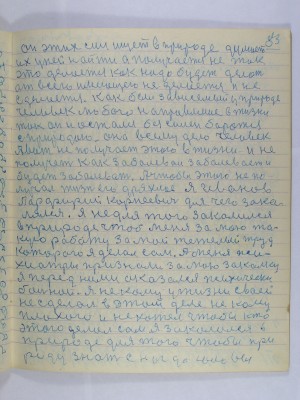 83
си этих сил ищет в природе думает
их у ней найти а получает не так
это думается как надо будет делат
от всего имеющего не
. Как был зависимый у природе
человек любого направление в жизни
так он и остался без силы борясь
с природою. На всему деле человек
явит не получает этого в жизни и не
получат как заболевал заболевает и
будет заболеват. А чтобы этого не по-
лучал жизнего для Я Иванов
Парфирий Корнеевич для чего зака-
лялся. Я не для того закалился
в природе чтоб меня за мою та-
кую работу за мой тяжелый труд
которого я делал сам. А меня пси-
хиатры признали за мою закалку
я перед ними оказался психически
больной. Я не кому у жизни своей
не сделал в этом деле не кому
плохого и не хотел чтобы кто
этого делал сам я закалился в
природе для того чтобы при
роду знат с ног до